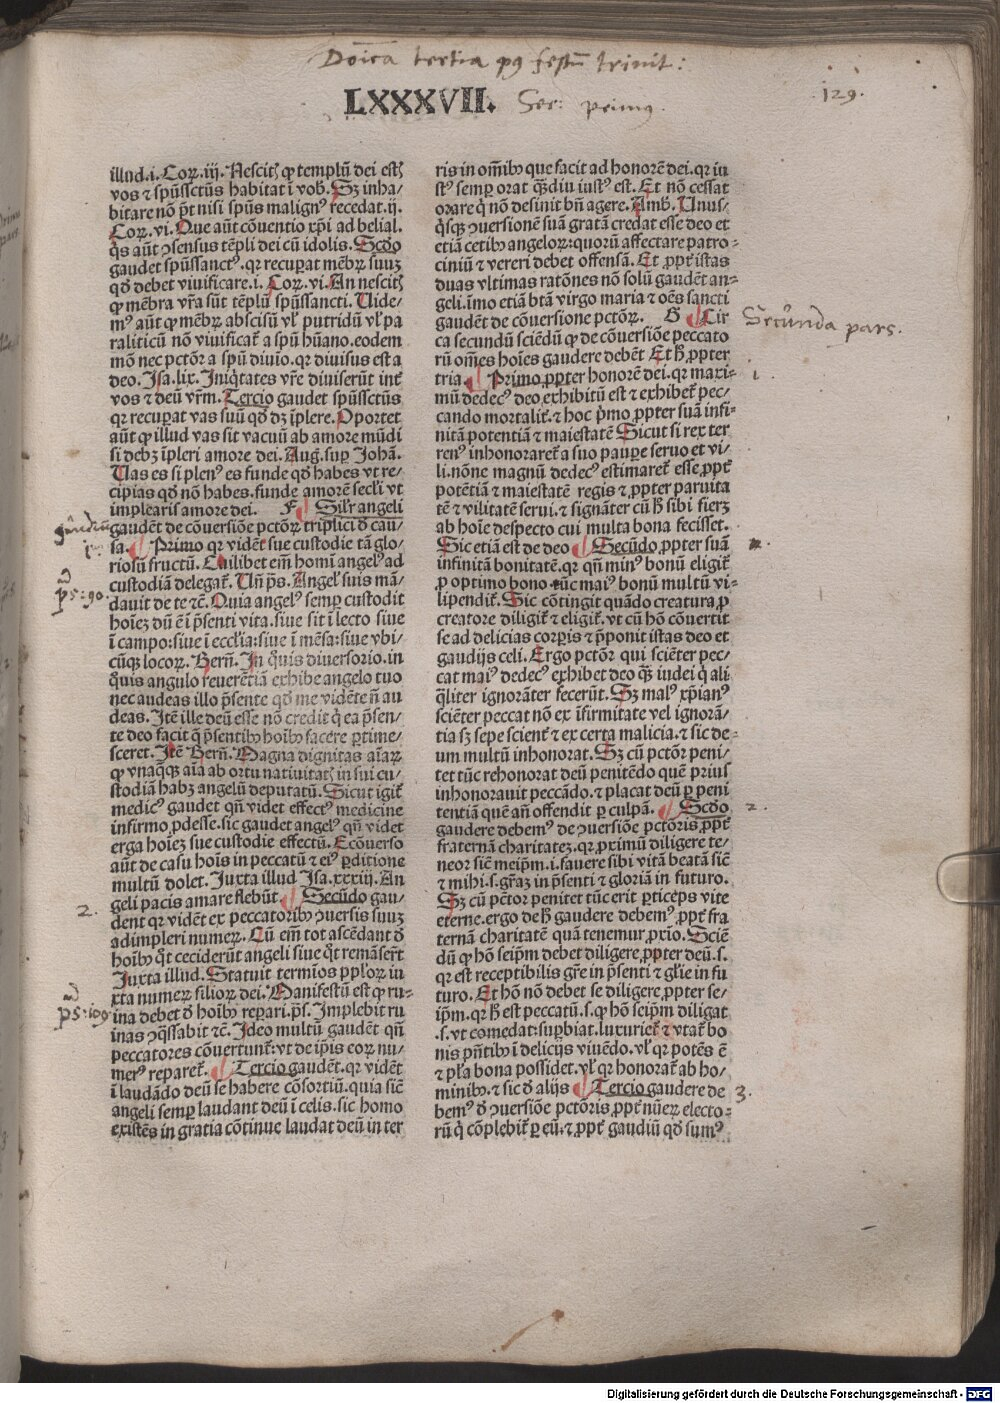 Dōica tertia pꝯ festū trinit:
LXXXVII. Ser: primꝯ
129.
illud .i. Coꝝ. iij. Nescitꝭ ꝙ templū dei estꝭ
vos ⁊ spūssctūs habitat ī vob̄. Sꝫ inha⸗
bitare nō pt̄ nisi spūs malignꝰ recedat .ij.
Coꝝ. vi. Que aūt cōuentio xp̄i ad belial.
q̇s aūt ꝯsensus tēpli dei cū idolis. Scd̓o
gaudet spūssanctꝰ. qꝛ recuꝑat mēbꝝ suuꝫ
qd̓ debet viuificare .i. Coꝝ. vi. An nescitꝭ
ꝙ mēbra vr̄a sūt tēplū spūssancti. Uide⸗
mꝰ aūt ꝙ mēbꝝ abscisū vl̓ putridū vl̓ pa
raliticū nō viuificat̃ a spū hūano. eodem
mō nec pctōr a spū diuīo. qꝛ diuisus est a
deo. Isa. lix. Iniq̇tates vr̄e diuiserūt int̓
vos ⁊ deū vr̄m. Tercio gaudet spūssctūs
qꝛ recuꝑat vas suū qd̓ dꝫ īplere. Oportet
aūt ꝙ illud vas sit vacuū ab amore mūdi
si debꝫ īpleri amore dei. Aug̓. suꝑ Johā.
Uas es si plenꝰ es funde qd̓ habes vt re⸗
cipias qd̓ nō habes. funde amorē secl̓i vt
implearis amore dei. F ¶ Silr̄ angeli
gaudēt de cōuersiōe pctōꝝ triplici d̓ cau⸗
sa. ¶ Primo qꝛ vidēt sue custodie tā glo⸗
riosū fructū. Cuilibet em̄ homī angelꝰ ad
custodiā delegat̃. Uñ ps̄. Angel̓ suis mā⸗
dauit de te ⁊c̄. Quia angelꝰ semꝑ custodit
hoīeꝫ dū ē ī p̄senti vita. siue sit ī lecto siue
ī campo: siue ī eccl̓ia: siue ī mēsa: siue vbi⸗
cūqꝫ locoꝝ. Berñ. In q̇uis diuersorio. in
q̇uis angulo reuerētiā exhibe angelo tuo
nec audeas illo p̄sente qd̓ me vidēte ñ au
deas. Itē ille deū esse nō credit q̇ ea p̄sen⸗
te deo facit q̇ p̄sentibꝰ hoībꝰ facere ꝑtime⸗
sceret. Itē Berñ. Magna dignitas aīaꝝ
ꝙ vnaqꝫ aīa ab ortu natiuitatꝭ in sui cu⸗
stodiā habꝫ angelū deputatū. Sicut igit̃
medicꝰ gaudet qñ videt effectꝰ medicine
infirmo ꝓdesse. sic gaudet angelꝰ qñ videt
erga hoīeꝫ sue custodie effectū. Ecōuerso
aūt de casu hoīs in peccatū ⁊ eiꝰ ꝑditione
multū dolet. Juxta illud Isa. xxxiij. An
geli pacis amare flebūt ¶ Secūdo gau⸗
dent qꝛ vidēt ex peccatoribꝰ ꝯuersis suuꝫ
adimpleri numeꝝ. Cū em̄ tot ascēdant d̓
hoībꝰ q̇t ceciderūt angeli siue q̇t remāser̄t
Juxta illud. Statuit termīos ppl̓oꝝ iu
xta numeꝝ filioꝝ dei. Manifestū est ꝙ ru⸗
ina debet d̓ hoībꝰ reꝑari. ps̄. Implebit ru
inas ꝯq̄ssabit ⁊c̄. Ideo multū gaudēt qñ
peccatores cōuertunt̃: vt de ip̄is coꝝ nu⸗
merꝰ reparet̃. ¶ Tercio gaudēt. qꝛ vidēt
ī laudādo deū se habere cōsortiū. quia sic̄
angeli semꝑ laudant deū ī celis. sic homo
existēs in gratia cōtinue laudat deū in ter
gaudiū
i.
ps: 90.
2.
ps: 109
ris in om̄ibꝰ que facit ad honorē dei. qꝛ iu
stꝰ semꝑ orat qᵃ̄diu iustꝰ est. Et nō cessat
orare q̇ nō desinit bn̄ agere. Amb̄. Unus⸗
q̇sqꝫ ꝯuersionē suā gratā credat esse deo et
etiā cetibꝰ angeloꝝ: quorū affectare patro⸗
ciniū ⁊ vereri debet offensā. Et ꝓpt̓ istas
duas vltimas ratōnes nō solū gaudēt an⸗
geli. īmo etiā btā virgo maria ⁊ oēs sancti
gaudēt de cōuersione pctōꝝ. G ¶ Cir
ca secundū sciēdū ꝙ de cōuersiōe peccato
rū om̄es hoīes gaudere debēt Et h̓ ꝓpter
tria. ¶ Primo ꝓpter honorē dei. qꝛ maxi⸗
mū dedecꝰ deo exhibitū est ⁊ exhibet̃ pec⸗
cando mortalit̓. ⁊ hoc p̓mo ꝓpter suā infi⸗
nitā potentiā ⁊ maiestatē Sicut si rex ter
renꝰ inhonoraret̃ a suo pauꝑe seruo et vi⸗
li. nōne magnū dedecꝰ estimaret̃ esse ꝓpt̓
potētiā ⁊ maiestatē regis ⁊ ꝓpter paruita
tē ⁊ vilitatē serui. ⁊ signāter cū h̓ sibi fieꝛꝫ
ab hoīe despecto cui multa bona fecisset.
Sic etiā est de deo ¶ Secūdo ꝓpter suā
infinitā bonitatē. qꝛ qñ minꝰ bonū eligit̃
ꝓ optimo bono tūc maiꝰ bonū multū vi⸗
lipendit̃. Sic cōtingit quādo creatura ꝓ
creatore diligit̃ ⁊ eligit̃. vt cū hō cōuertit
se ad delicias corꝑis ⁊ p̄ponit istas deo et
gaudijs celi. Ergo pctōr qui sciēter pec⸗
cat maiꝰ dedecꝰ exhibet deo qᵃ̄ iudei q̇ ali
q̄liter ignorāter fecerūt. Sꝫ malꝰ xp̄ianꝰ
sciēter peccat nō ex īfirmitate vel ignorā⸗
tia sꝫ sepe scient̓ ⁊ ex certa malicia. ⁊ sic de⸗
um multū inhonorat. Sꝫ cū pctōr peni⸗
tet tūc rehonorat deū penitēdo quē prius
inhonorauit peccādo. ⁊ placat deū ꝑ peni
tentiā quē añ offendit ꝑ culpā. ¶ Scd̓o
gaudere debemꝰ de ꝯuersiōe pctōris ꝓpt̓
fraternā charitateꝫ. qꝛ ꝓximū diligere te⸗
neor sic̄ meip̄m .i. fauere sibi vitā beatā sic̄
⁊ mihi .s. gr̄aꝫ in p̄senti ⁊ gloriā in futuro.
Sꝫ cū pc̄tor penitet tūc erit ꝑticeps vite
eterne. ergo de h̓ gaudere debemꝰ ꝓpt̓ fra
ternā charitatē quā tenemur ꝓxīo. Sciē
dū ꝙ hō seip̄m debet diligere ꝓpter deū .s.
qꝛ est receptibilis gr̄e in p̄senti ⁊ gl̓ie in fu
turo. Et hō nō debet se diligere ꝓpter se⸗
ip̄m. qꝛ h̓ est peccatū .s. ꝙ hō seip̄m diligat
.s. vt comedat: suꝑbiat. luxuriet̃ ⁊ vtat̃ bo
nis p̄ntibꝰ ī delicijs viuēdo. vl̓ qꝛ potēs ē
⁊ pl̓a bona possidet. vl̓ qꝛ honorat̃ ab ho⸗
minibꝰ. ⁊ sic d̓ alijs ¶ Tercio gaudere de
bemꝰ d̓ ꝯuersiōe pctōris ꝓpt̓ nūeꝝ electo⸗
rū q̇ cōplebit̃ ꝑ eū. ⁊ ꝓpt̓ gaudiū qd̓ sumꝰ
Secūnda pars.
i
2.
3.
Digitalisierung gefördert durch die Deutsche Forschungsgemeinschaft - DFG